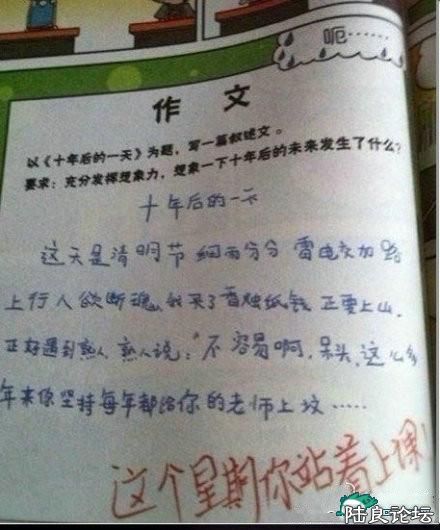 呃……
作 文
以《十年后的一天》为题，写一篇叙述文。
要求：充分发挥想象力，想象一下十年后的未来发生了什么？
十年后的一天
这天是清明节 细雨分分 雷电交加 路
上行人欲断魂，我买了香烛纸钱 正要上山，
正好遇到熟人，熟人说："不容易啊，呆头，这么多
年来你坚持每年都给你的老师上坟……
这个星期你站着上课！
陆良论坛